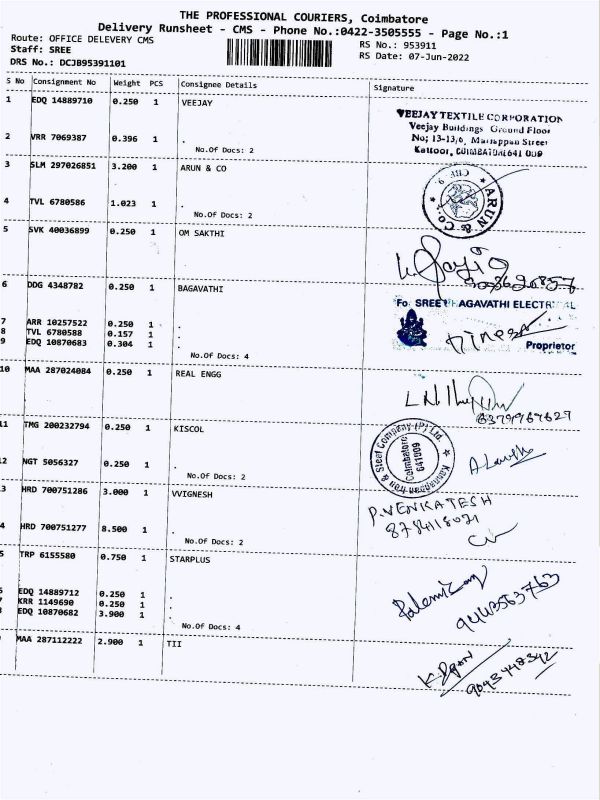 THE PROFESSIONAL COURIERS, Coimbatore
Delivery Runsheet - CMS - Phone No.:0422-3505555 - Page No.:1
Route: OFFICE DELEVERY CMS
RS No.: 953911
Staff: SREE
RS Date: 07-Jun-2022
DRS No.: DCJB95391101
S No Consignment No Weight PCS Consignee Details Signature
1 EDQ 14889710 0.250 1 VEEJAY
VEEJAY TEXTILE CORPORATION
Veejay Buildings Ground Floor
No; 13-13/6, Mariappan Street
Kattoor, COIMBATORE 641 009
2 VRR 7069387 0.396 1 .
No.Of Docs: 2
3 SLM 297026851 3.200 1 ARUN & CO
ARUN & CO.
CBE 9
4 TVL 6780586 1.023 1 .
No.Of Docs: 2
5 SVK 40036899 0.250 1 OM SAKTHI
6 DDG 4348782 0.250 1 BAGAVATHI
For SREE BHAGAVATHI ELECTRICAL
7 ARR 10257522 0.250 1 .
8 TVL 6780588 0.157 1 .
9 EDQ 10870683 0.304 1 .
Proprietor
No.Of Docs: 4
10 MAA 287024084 0.250 1 REAL ENGG
6379967627
11 TMG 200232794 0.250 1 KISCOL
Kannappan Iron & Steel Company (P) Ltd.
Coimbatore
641009
12 NGT 5056327 0.250 1 .
No.Of Docs: 2
3 HRD 700751286 3.000 1 VVIGNESH
P.VENKATESH
4 HRD 700751277 8.500 1 .
No.Of Docs: 2
5 TRP 6155580 0.750 1 STARPLUS
6 EDQ 14889712 0.250 1 .
7 KRR 1149690 0.250 1 .
8 EDQ 10870682 3.900 1 .
9443563763
No.Of Docs: 4
9 MAA 287112222 2.900 1 TII
9043448342